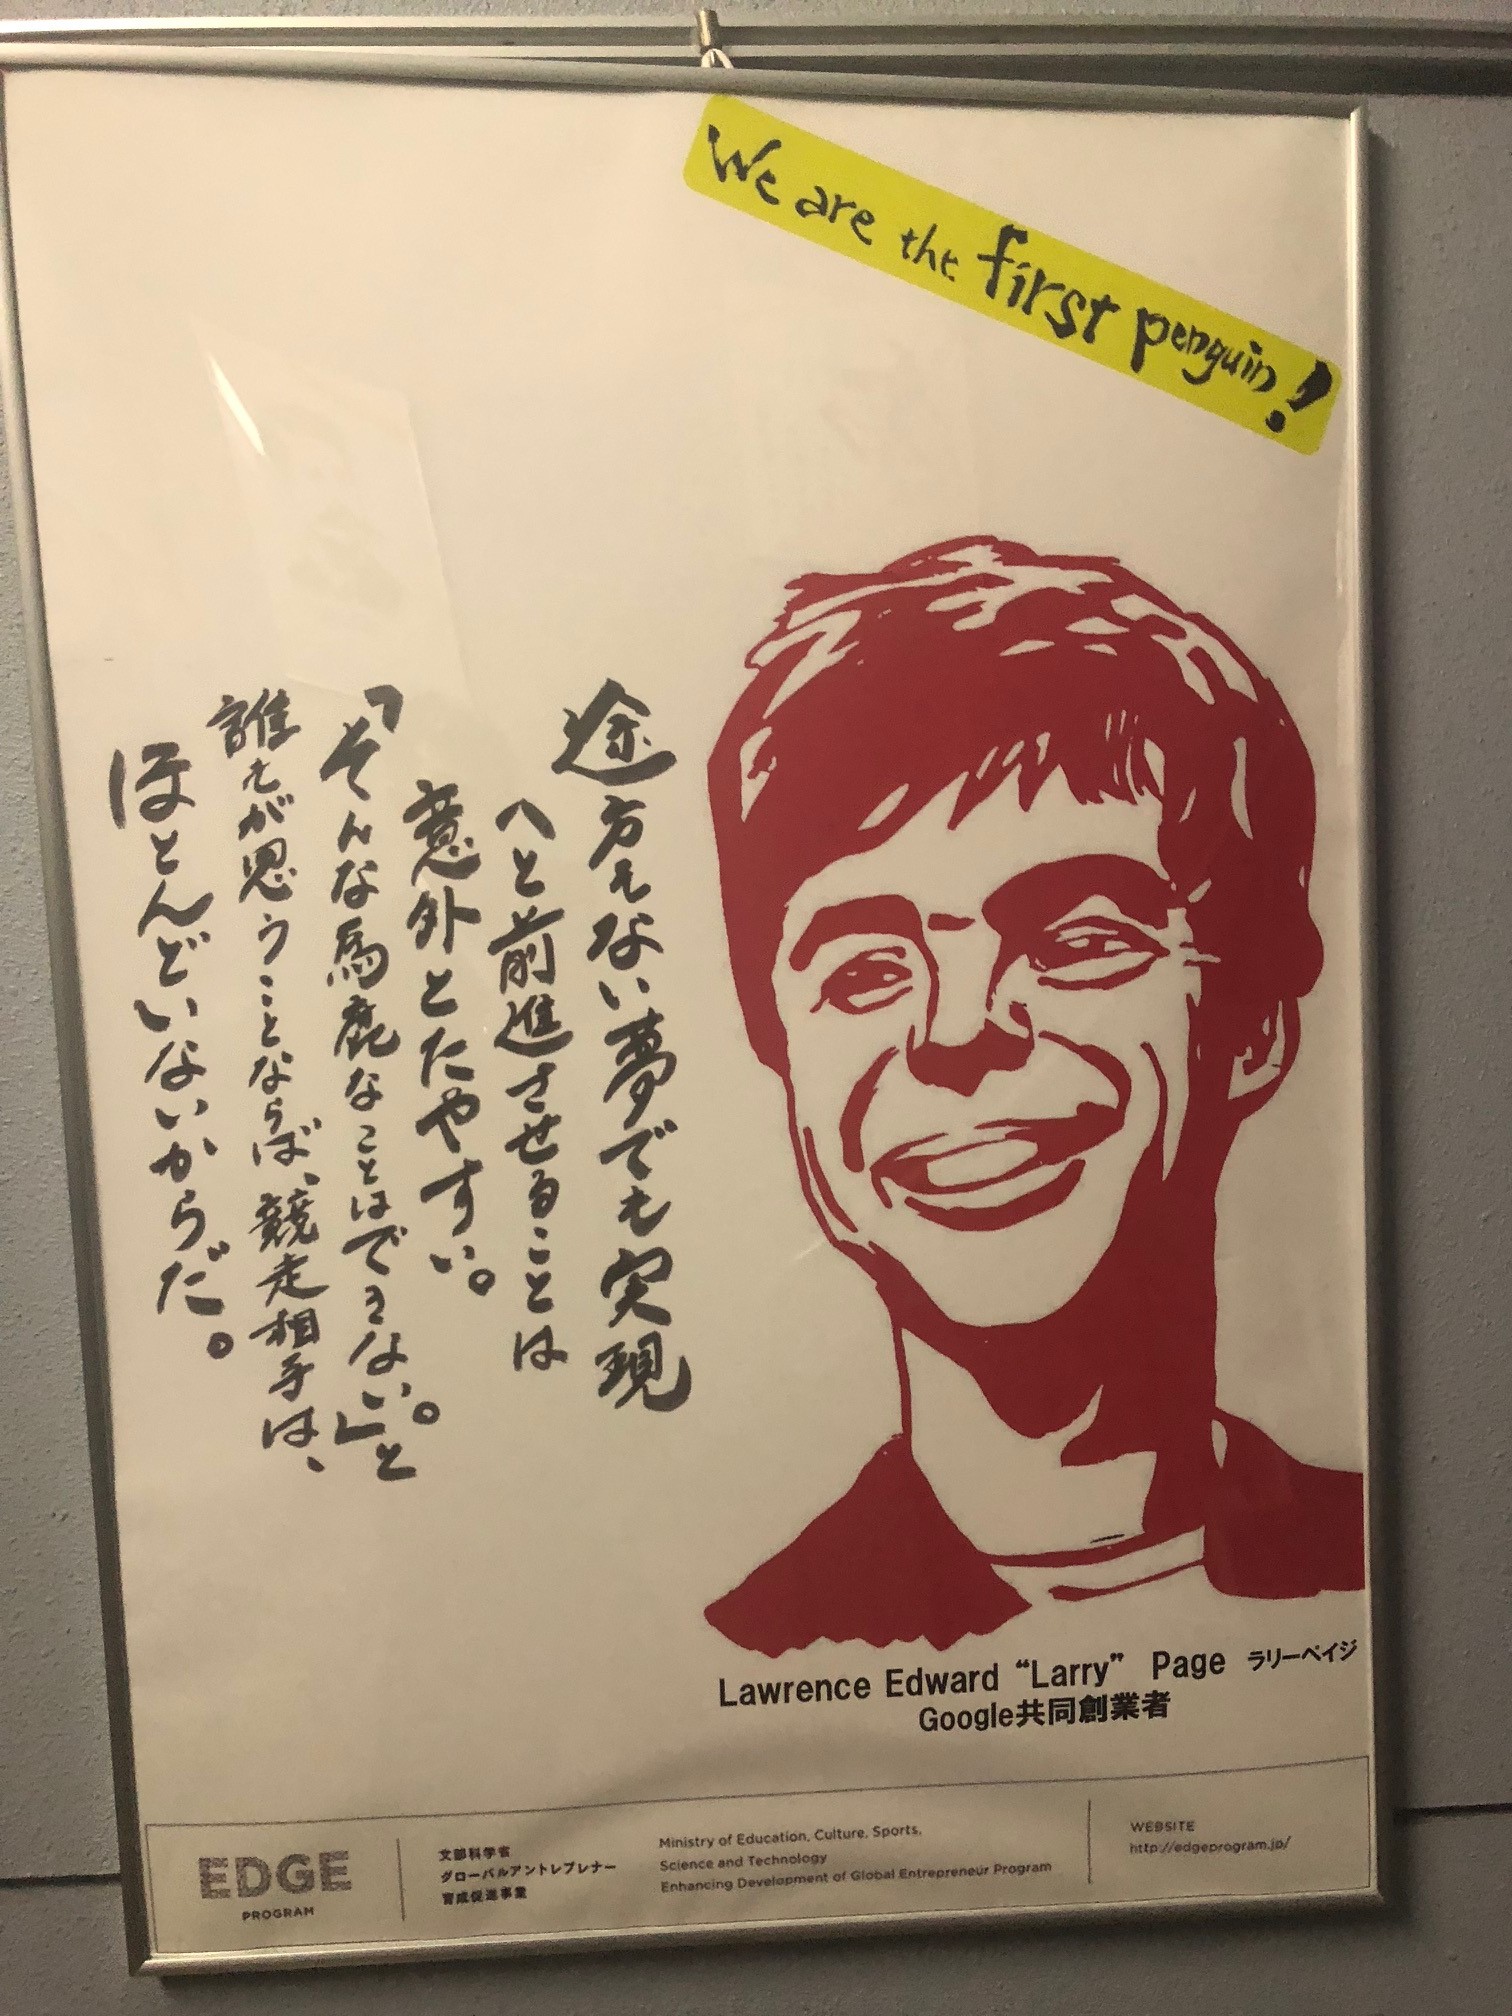 We are the first penguin!
途方もない夢でも実現
へと前進させることは
意外とたやすい。
「そんな馬鹿なことはできない。」と
誰もが思うことならば、競走相手は、
ほとんどいないからだ。
Lawrence Edward “Larry” Page ラリーペイジ
Google共同創業者
EDGE
PROGRAM
文部科学省
グローバルアントレプレナー
育成促進事業
Ministry of Education, Culture, Sports,
Science and Technology
Enhancing Development of Global Entrepreneur Program
WEBSITE
http://edgeprogram.jp/